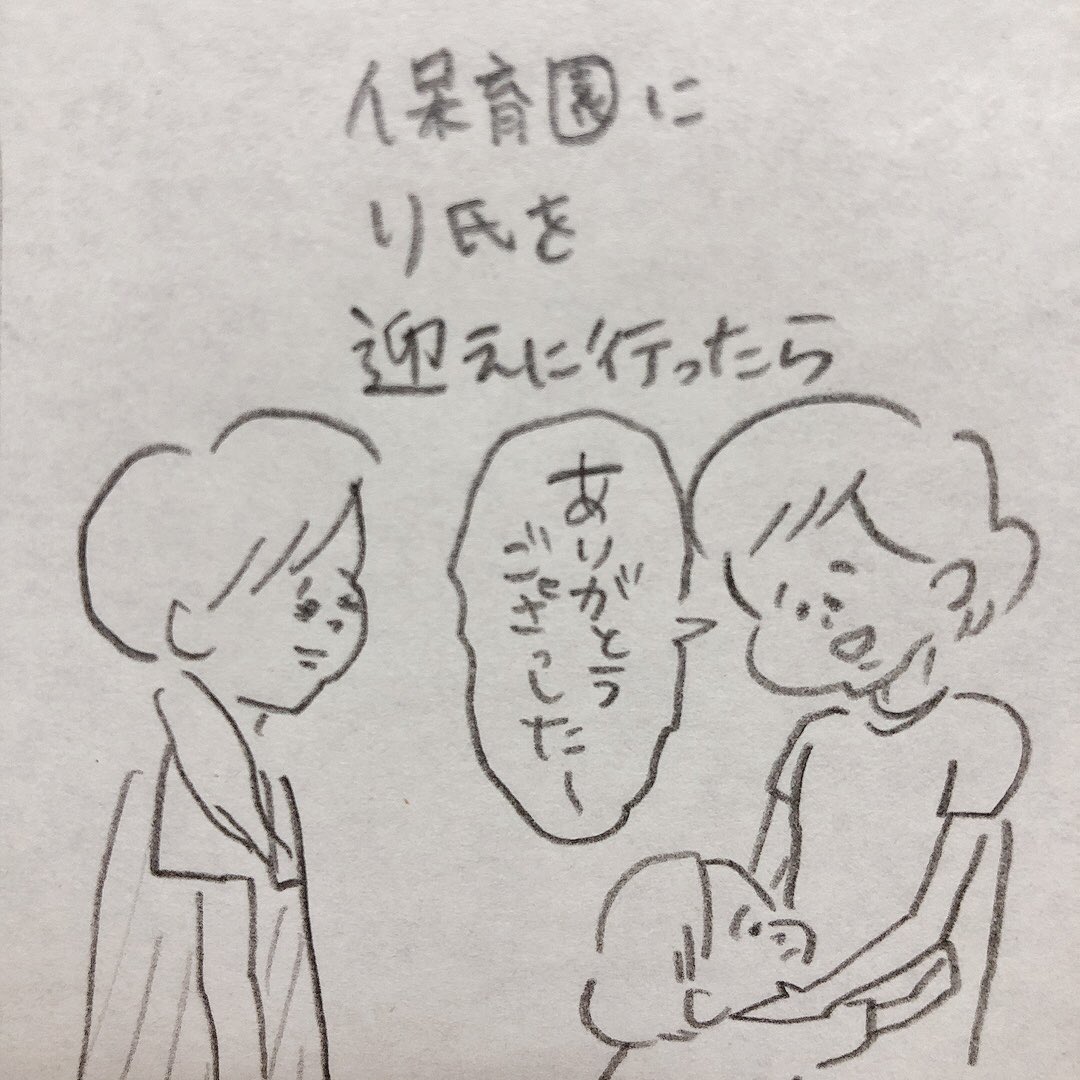 保育園に
り氏を
迎えに行ったら
ありがとう
ございしたー